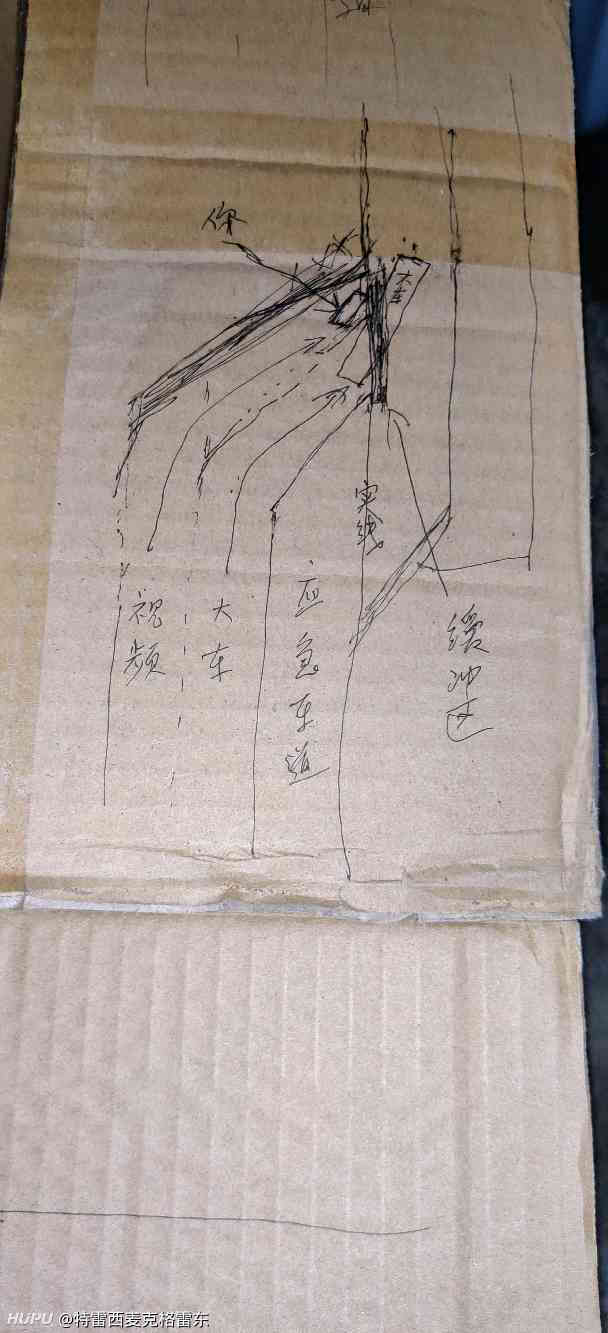 你
大车
实线
视频
大车
应急车道
缓冲区
HUPU @特雷西麦克格雷东